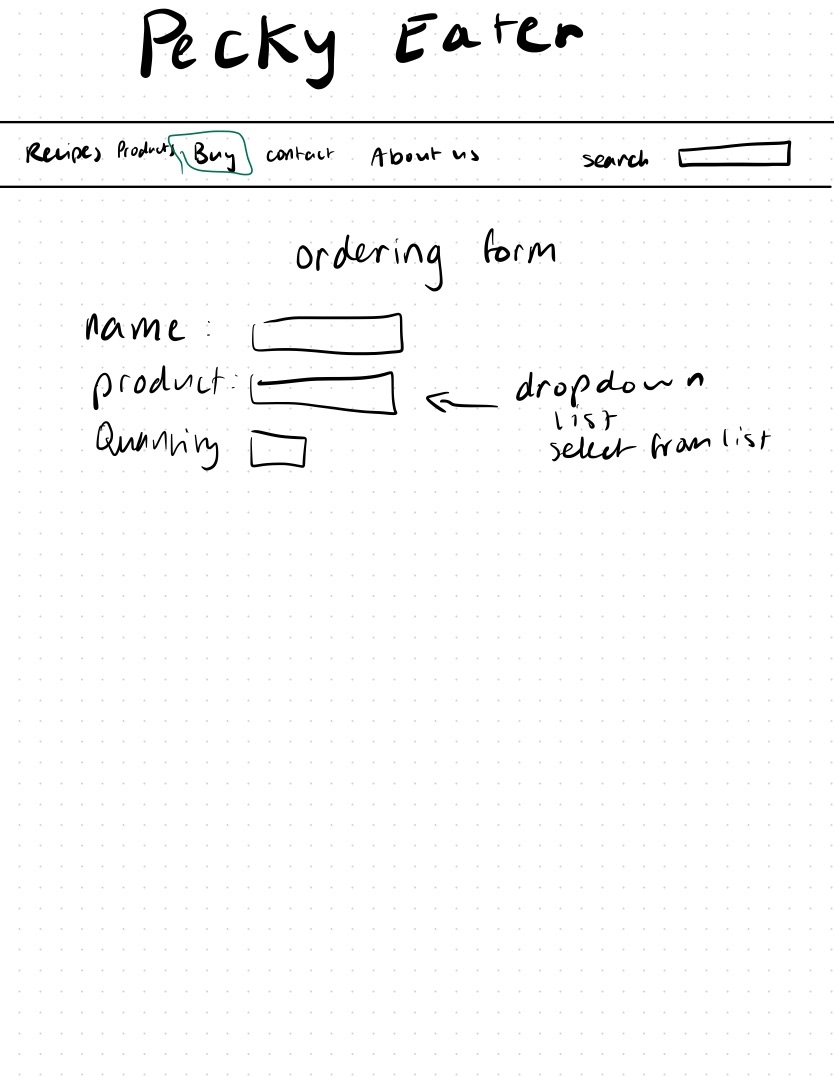 Pecky Eater
Recipes Products Buy contact About us search
ordering form
name :
product : dropdown
list
Quantity select from list